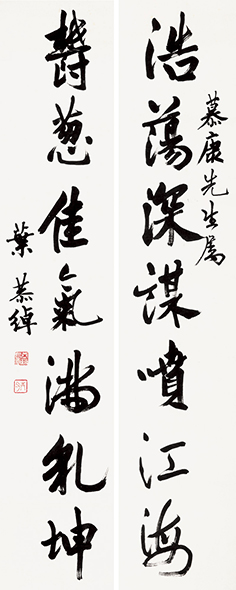 慕康先生屬
浩蕩深謀噴江海
鬱葱佳氣滿乾坤
葉恭綽